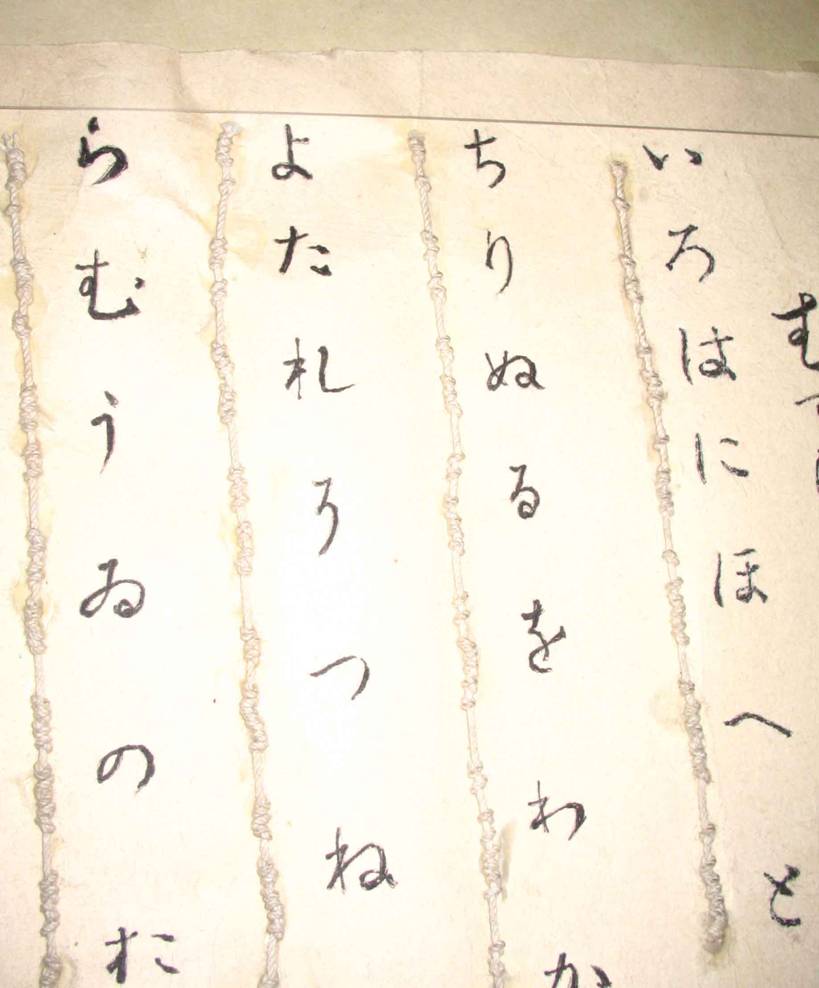 いろはにほへと
ちりぬるをわか
よたれそつね
らむうゐのお